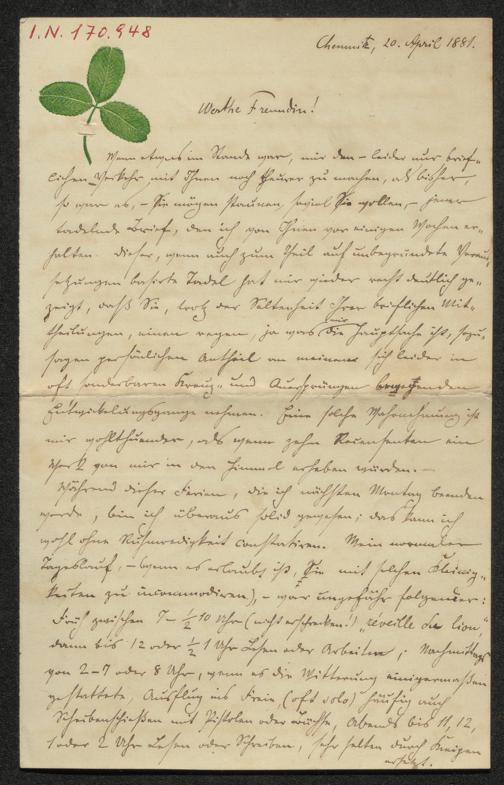 I.N. 170.948
Chemnitz, 20. April 1881.
Werthe Freundin!
Wenn etwas im Stande war, mir den – leider nur brief-
lichen Verkehr mit Ihnen noch theurer zu machen, als bisher,
so war es, – Sie mögen staunen, soviel Sie wollen, – jener
tadelnde Brief, den ich von Ihnen vor einigen Wochen er-
halten. Dieser, wenn auch zum Theil auf unbegründete Voraus-
setzungen basirte Tadel hat mir wieder recht deutlich ge-
zeigt, daß Sie, trotz der Seltenheit Ihrer brieflichen Mit-
theilungen, einen regen, ja was mir die Hauptsache ist, sozu-
sagen persönlichen Antheil an meinem sich leider in
oft sonderbaren Kreuz- und Querssprüngen bewegenden
Entwickelungsgange nehmen. Eine solche Wahrnehmung ist
mir wohlthuender, als wenn zehn Recensenten ein
Werk von mir in den Himmel erheben würden. –
Während dieser Ferien, die ich nächsten Montag beenden
werde, bin ich überaus solid gewesen; das kann ich
wohl ohne Ruhmredigkeit constatiren. Mein normaler
Tageslauf, – (wenn es erlaubt ist, Sie mit solchen Kleinig-
keiten zu incommodiren), – war ungefähr folgender:
Früh zwischen 7 – ½ 10 Uhr (nicht erschrecken!) "reveille du lion",
dann bis 12 oder ½ 1 Uhr Lesen oder Arbeiten; Nachmittags
von 2–7 oder 8 Uhr, wenn es die Witterung einigermaßen
gestattete, Ausflug ins Freie, (oft solo) häufig auch
Scheibenschießen mit Pistolen oder Büchse, Abends bis 11, 12,
1 oder 2 Uhr Lesen oder Schreiben, sehr selten durch Kneipen
ersetzt.